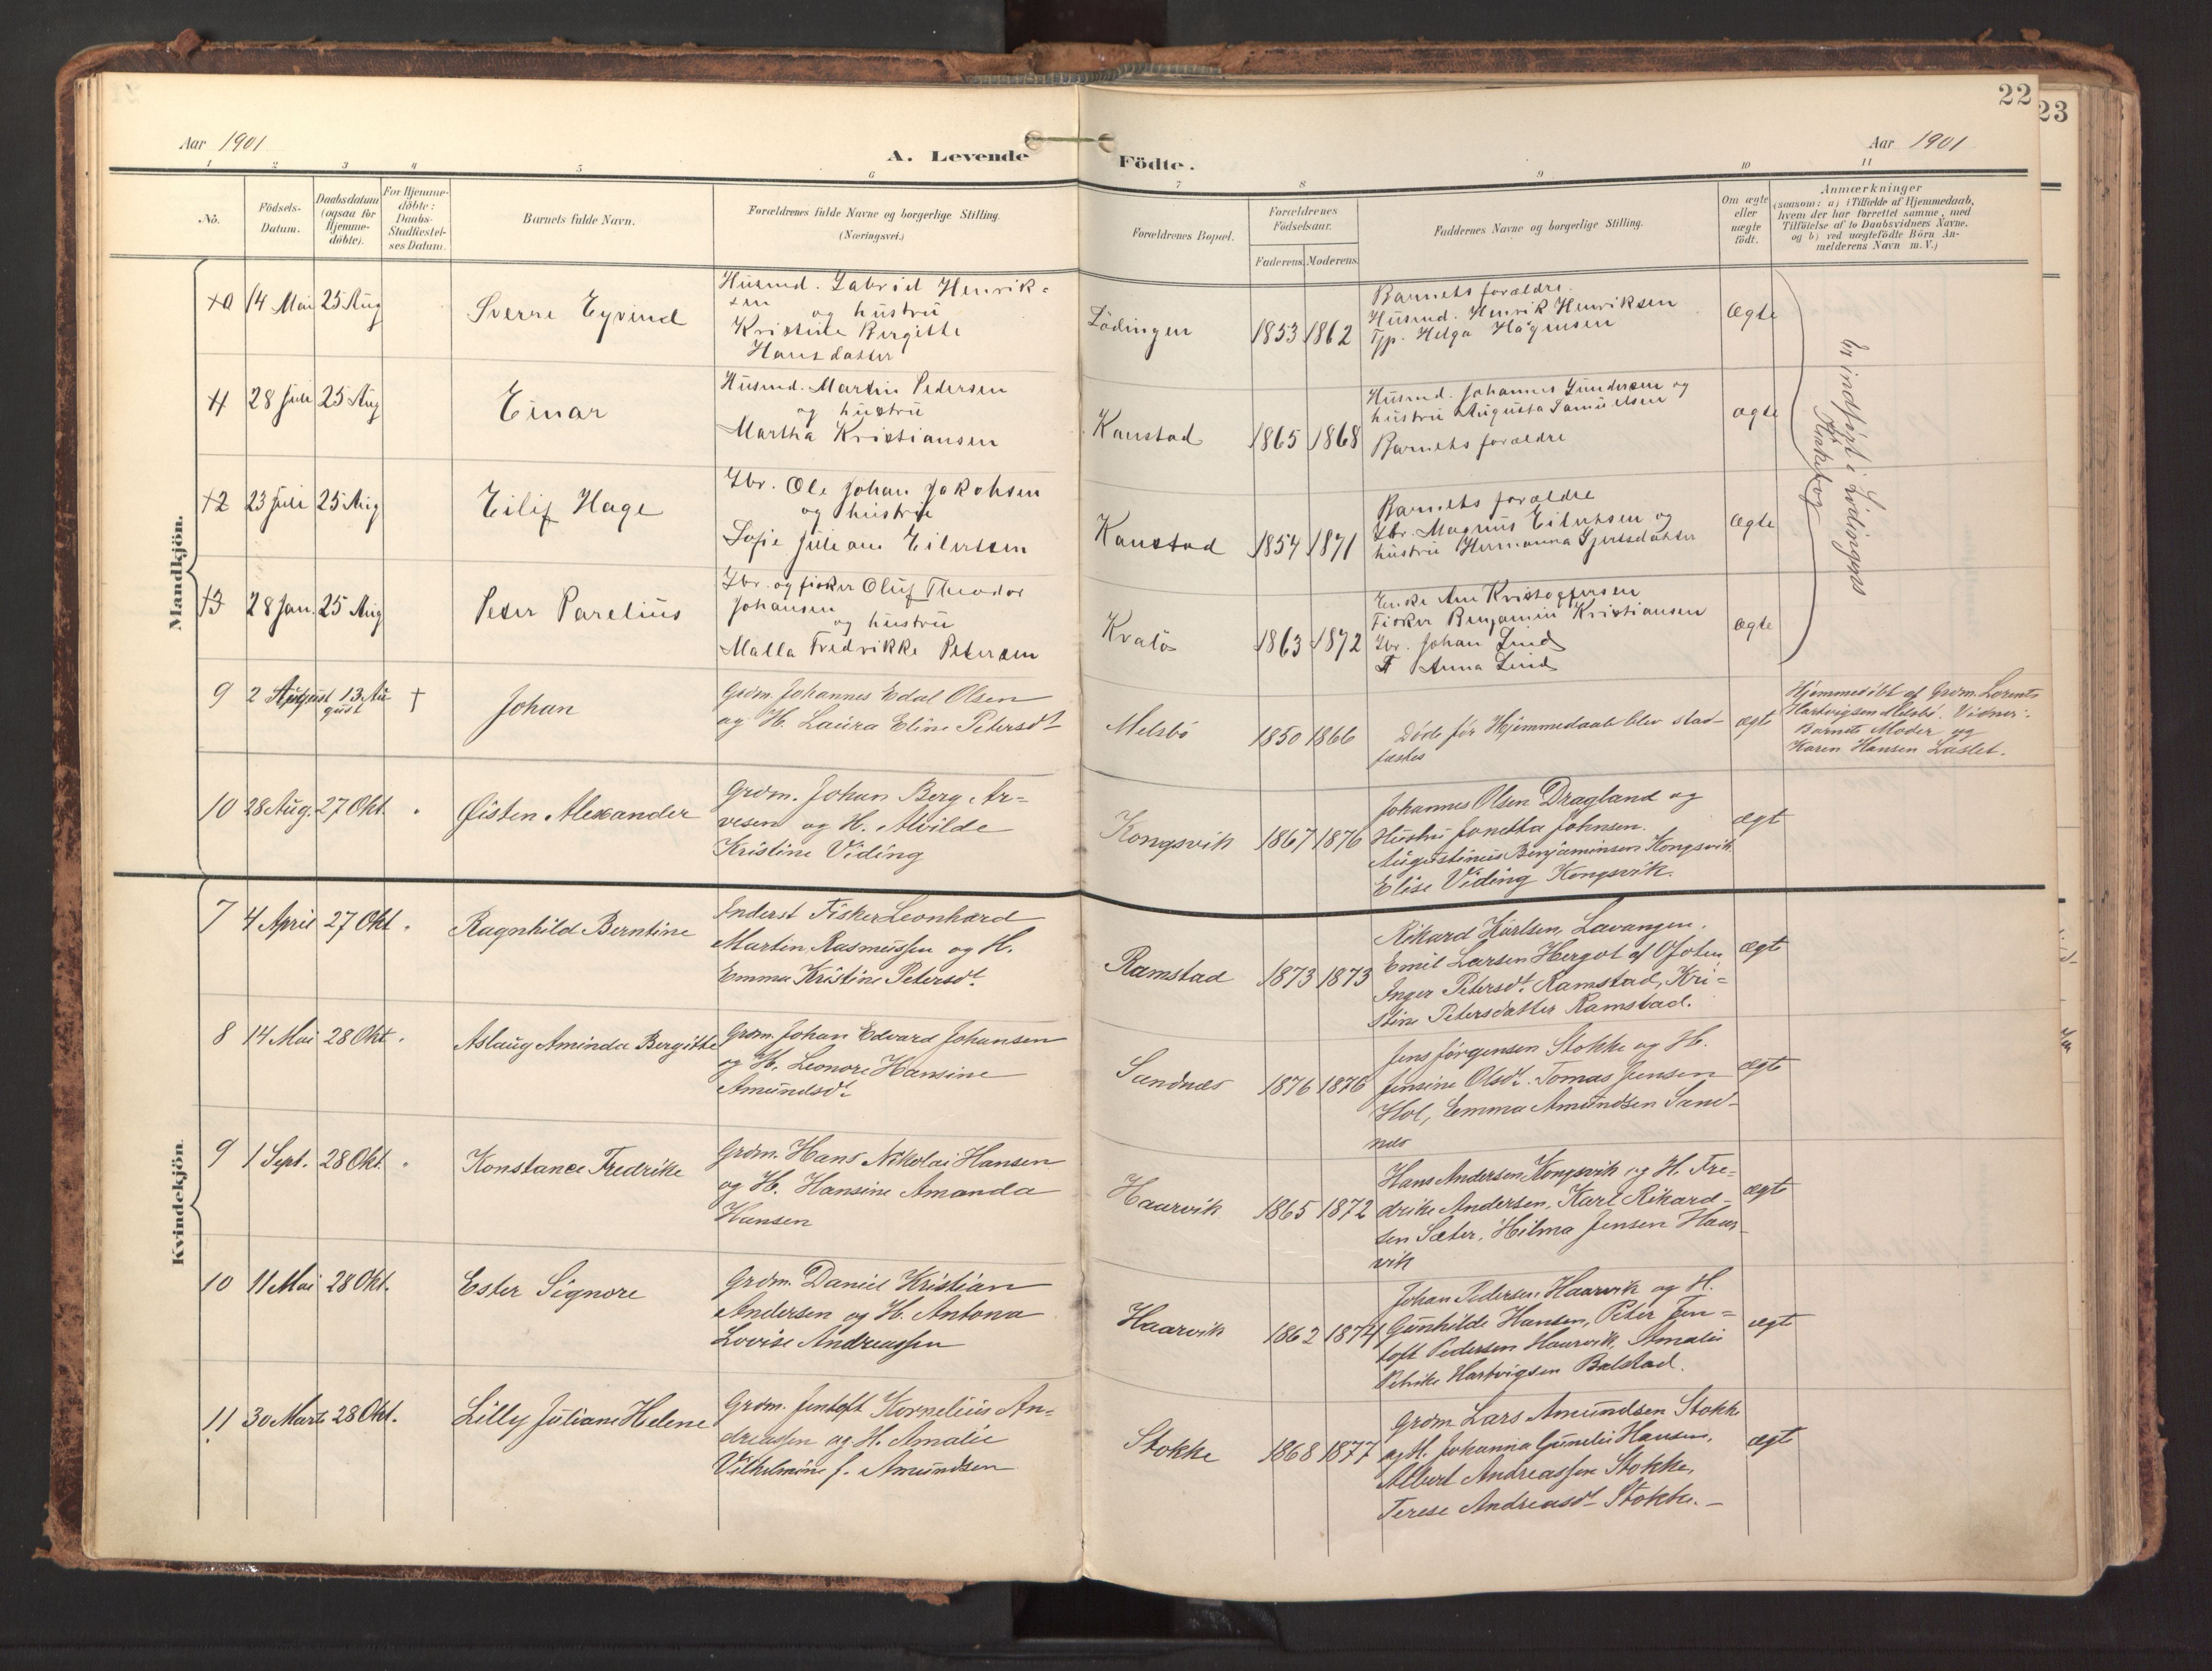 22
23
Aar 1901
A. Levende
Födte.
Aar 1901
1 2 3 4 5 6 7 8 9 10 11
No.
Födsels-
Datum.
Daabsdatum
(ogsaa for
Hjemme-
döbte).
For Hjemme-
döbte:
Daabs-
Stadfæstel-
ses Datum.
Barnets fulde Navn.
Forældrenes fulde Navne og borgerlige Stilling.
(Næringsvei.)
Forældrenes Bopæl.
Forældrenes
Födselsaar.
Faderens. Moderens.
Faddernes Navne og borgerlige Stilling.
Om ægte
eller
uægte
födt.
Anmærkninger
(saasom: a) i Tilfælde af Hjemmedaab,
hvem der har forrettet samme, med
Tilföielse af to Daabsvidners Navne.
og b) ved uægtefödte Börn An-
melderens Navn m. V.)
Mandkjön.
14 Mai 25 Aug
Sverre Eyvind
Husmd. Gabriel Henrik-
sen
og hustru
Kristine Bergitte
Hansdatter
Lödingen
1853 1862
Barnets forældre.
Husmd. Henrik Henriksen
Tjp. Helga Hågensen
Ægte
11 28 Juli 25 Aug
Einar
Husmd. Martin Pedersen
og hustru
Martha Kristiansen
Kanstad
1865 1868
Husmd. Johannes Gundersen og
hustru Augusta Samuelsen
Barnets forældre
ægte
12 23 Juli 25 Aug
Eilif Hage
Gbr. Ole Johan Jakobsen
og hustru
Sofie Juliane Eilertsen
Kanstad
1854 1871
Barnets forældre
Gbr. Magnus Eilertsen og
hustru Hermanna Gjertsdatter
Ægte
13 28 Jan. 25 Aug
Peder Parelius
Gbr. og fisker Oluf Theodor
Johansen
og hustru
Malla Fredrikke Petersen
Kvalö
1863 1872
Enke Ane Kristoffersen
Fisker Benjamin Kristiansen
Gbr. Johan Lind
Anna Lind
ægte
Er indført i Lødingens
Kirkebog
9 2 August 13. Au-
gust
†
Johan
Grdm. Johannes Edal Olsen
og H. Laura Eline Petersdt
Melsbö
1850 1866
Døde før Hjemmedaab blev stad-
fæstes
ægte
Hjemmedøbt af Grdm. Lorents
Hartvigsen Melsbö. Vidner:
Barnets Moder og
Karen Hansen
10 28 Aug. 27 Okt.
Øisten Alexander
Grdm. Johan Berg Ar-
vesen og H. Alvilde
Kristine Viding
Kongsvik
1867 1876
Johannes Olsen Dragland og
Hustru Jonetta Johnsen.
Augustinus Benjaminsen Kongsvik
Elise Viding Kongsvik.
ægt
Kvindekjön.
7 4 April 27 Okt
Ragnhild Berntine
Inderst Fisker Leonhard
Martin Rasmussen og H.
Emma Kristine Petersdt.
Ramstad
1873 1873
Rikard Karlsen, Lavangen.
Emil Larsen Hergot af Ofoten
Inger Petersdt. Ramstad, Kri-
stine Petersdatter Ramstad.
ægt
8 14 Mai 28 Okt.
Aslaug Aminda Bergitte
Grdm. Johan Edvard Johansen
og H. Leonore Hansine
Amundsdt.
Sandnes
1876 1876
Jens Jørgensen Stokke og H.
Jensine Olsdt. Tomas Jensen
Hol, Emma Amundsen Sand-
nes
ægt
9 1 Sept. 28 Okt.
Konstance Fredrike
Grdm. Hans Nikolai Hansen
og H. Hansine Amanda
Hansen
Haarvik
1865 1872
Hans Andersen Kongsvik og H. Fre-
drike Andersen, Karl Rikard-
sen Sæter, Hilma Jensen Haar-
vik
ægt
10 11 Mai 28 Okt.
Ester Signore
Grdm. Daniel Kristian
Andersen og H. Antona
Lovise Andreassen
Haarvik
1862 1874
Johan Pedersen Haarvik og H.
Gunhilde Hansen, Peter Jen-
toft Pedersen Haarvik, Amalie
Petrike Hartvigsen Balstad.
ægt
11 30 Mart 28 Okt.
Lilly Juliane Helene
Grdm. Jentoft Kornelius An-
dreassen og H. Amalie
Vilhelmine f. Amundsen
Stokke
1868 1877
Grdm. Lars Amundsen Stokke
og H. Johanna Hansen,
Albert Andreassen Stokke,
Terese Andreasdt. Stokke.
ægt